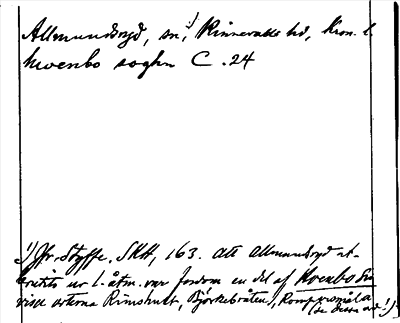 Allmundsryd, sn, ¹) Kinnevalds hd, Kron. l.
hwenbo soghn C. 24
¹) Jfr. Styffe. SKH, 163. att Allmundsryd ut-
brutits ur l. åtm. var fordom en del af Hvenbo
visa orterna Rimshult, Björkebråten, Romp
(se dessa ord!).